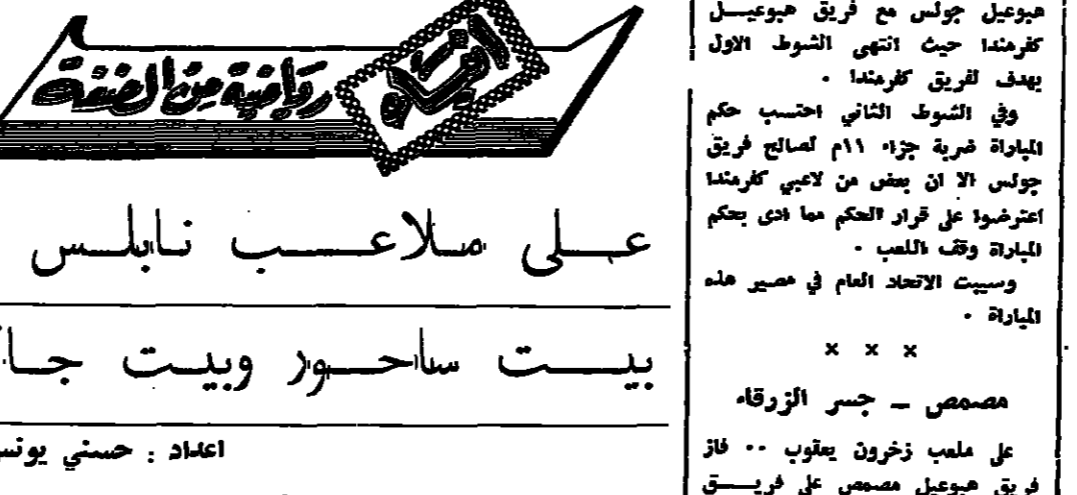 هبوعيل جولس مع فريق هبوعيل
كفرمندا حيث انتهى الشوط الاول
بهدف لفريق كفرمندا .
وفي الشوط الثاني احتسب حكم
المباراة ضربة جزاء ١١م لصالح فريق
جولس الا ان بعض من لاعبي كفرمندا
اعترضوا على قرار الحكم مما ادى بحكم
المباراة وقف اللعب .
وسيبت الاتحاد العام في مصير هذه
المباراة .
× × ×
مصمص ــ جسر الزرقاء
على ملعب زخرون يعقوب .. فاز
فريق هبوعيل مصمص على فريق
اخبار
رياضية من الضفة
على ملاعب نابلس
بيت ساحور وبيت
اعداد : حسني يونس